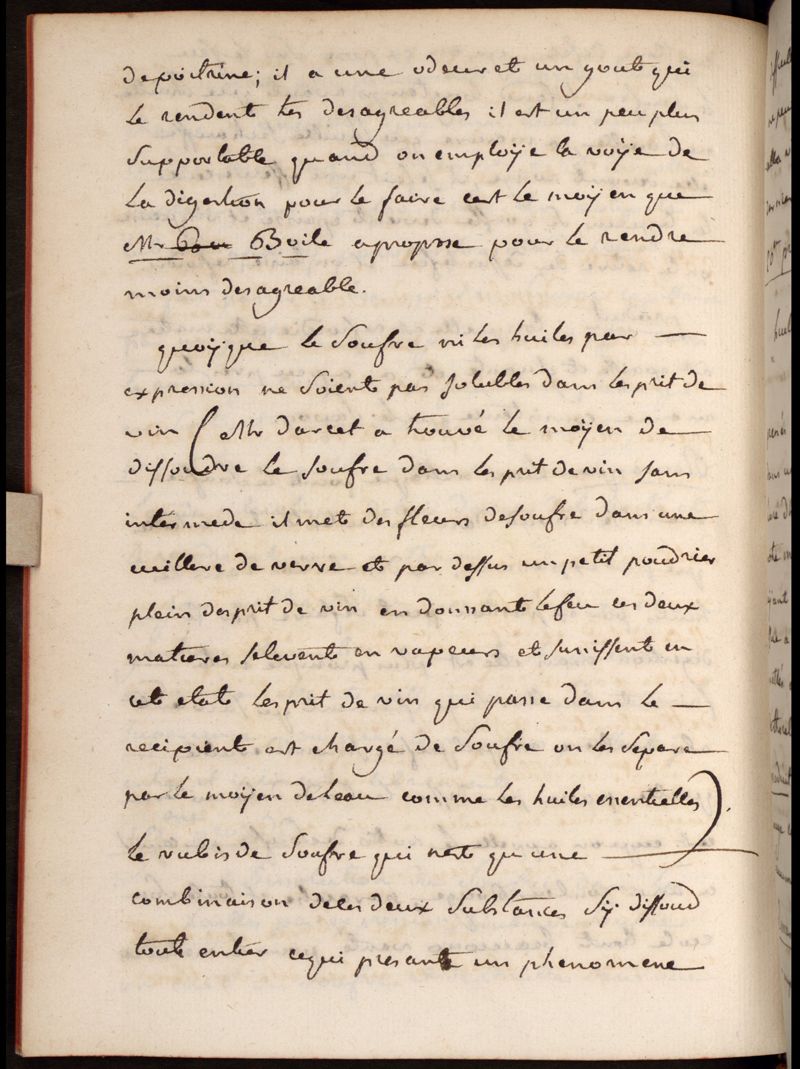 de poitrine; il a une odeur et un gout qui
le rendent tres desagreables il est un peu plus
supportable quand on employe la voye de
la digestion pour le faire cest le moyen que
Mr Boile a propose pour le rendre
moins desagreable.
quoyque le soufre ni les huiles par —
expression ne soient pas solubles dans lesprit de
vin ( Mr darcet a trouvé le moyen de —
dissoudre le soufre dans lesprit de vin sans
intermede il met des fleurs de soufre dans une
cuillere de verre et par dessus un petit poudrier
plein desprit de vin en donnant le feu ces deux
matieres selevent en vapeurs et sunissent en
cet etat lesprit de vin qui passe dans le —
recipient est chargé de soufre on les separe
par le moyen de leau comme les huiles essentielles ).
le rubis de soufre qui nest qu une —
combinaison de ces deux substances sy dissoud
tout entier ce qui presante un phenomene